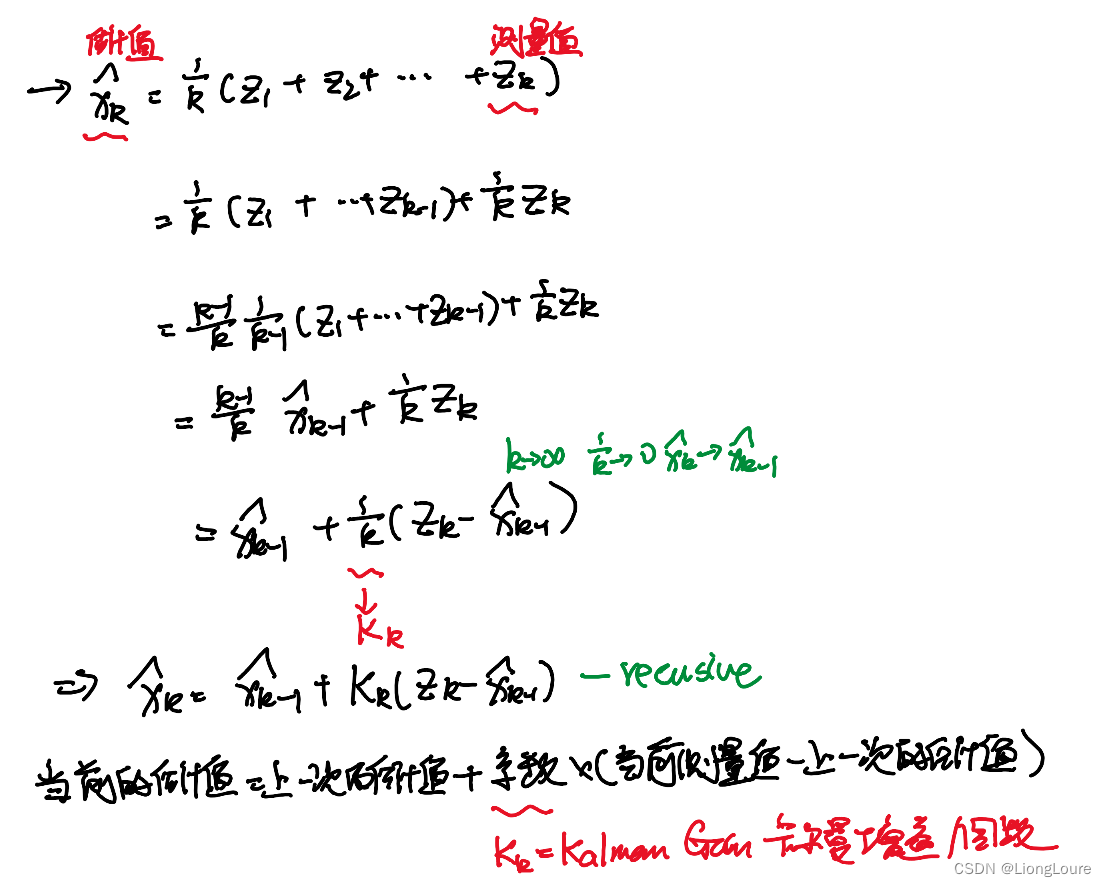 估计值 测量值
→ x̂ₖ = 1/k (z₁ + z₂ + ··· + zₖ)
= 1/k (z₁ + ··· + zₖ₋₁) + 1/k zₖ
= k-1/k 1/k-1 (z₁ + ··· + zₖ₋₁) + 1/k zₖ
= k-1/k x̂ₖ₋₁ + 1/k zₖ
k→∞ 1/k→0 x̂ₖ→x̂ₖ₋₁
= x̂ₖ₋₁ + 1/k (zₖ - x̂ₖ₋₁)
↓
Kₖ
⇒ x̂ₖ = x̂ₖ₋₁ + Kₖ (zₖ - x̂ₖ₋₁) — recusive
当前的估计值 = 上一次的估计值 + 系数 × (当前测量值 - 上一次的估计值)
Kₖ = Kalman Gain 卡尔曼增益/因数
CSDN @LiongLoure